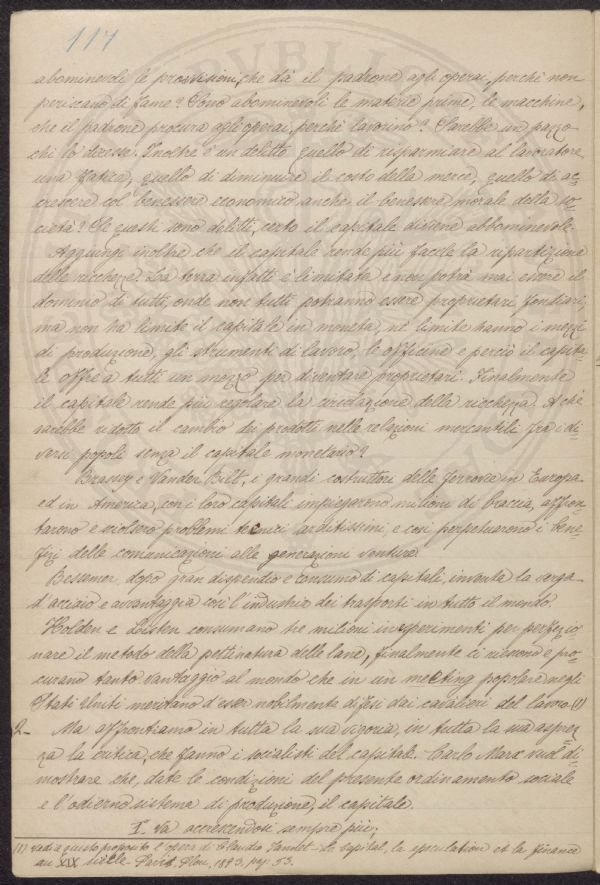 117
abominevoli le provvisioni, che dà il padrone agli operai, perché non
periscano di fame? Sono abominevoli le materie prime, le macchine,
che il padrone procura agli operai, perché lavorino? Sarebbe un pazzo
chi lo dicesse. Inoltre è un delitto quello di risparmiare al lavoratore
una fatica, quello di diminuire il costo della merce, quello di ac-
crescere col benessere economico anche il benessere morale della so-
cietà? Se questi sono delitti, certo il capitale diviene abbominevole.
Aggiungi inoltre che il capitale rende più facile la ripartizione
delle ricchezze. La terra infatti è limitata e non potrà mai essere il
dominio di tutti, onde non tutti potranno essere proprietari fondiari,
ma non ha limite il capitale in moneta, né limite hanno i mezzi
di produzione, gli strumenti di lavoro, le officine e perciò il capita
le offre a tutti un mezzo per diventare proprietari. Finalmente
il capitale rende più regolare la circolazione della ricchezza. A che
sarebbe ridotto il cambio dei prodotti nelle relazioni mercantili fra i di
versi popoli senza il capitale monetario?
Brassey e Vander Bilt, i grandi costruttori delle ferrovie in Europa
ed in America, con i loro capitali impiegarono milioni di braccia, affron-
tarono e sciolsero problemi tecnici arditissimi, e così perpetuarono i bene-
fizi delle comunicazioni alle generazioni venture.
Bessemer, dopo gran dispendio e consumo di capitali, inventa la verga
d'acciaio e avvantaggia così l'industria dei trasporti in tutto il mondo.
Holden e Listen consumano tre milioni in esperimenti per perfezio
nare il metodo della pettinatura delle lane, finalmente ci riescono e pro-
curano tanto vantaggio al mondo che in un meeting popolare negli
Stati Uniti meritano d'esser nobilmente difesi dai cavalieri del lavoro (1)
2- Ma affrontiamo in tutta la sua vigoria, in tutta la sua asprez
za la critica, che fanno i socialisti del capitale. Carlo Marx vuol di-
mostrare che, date le condizioni del presente ordinamento sociale
e l'odierno sistema di produzione, il capitale.
I. va accrescendosi sempre più;
(1) vedi a questo proposito l'opera di Claudio Jannet - Le capital, la speculation et la finance
au XIX siècle - Paris, Plon, 1893, pg. 53.